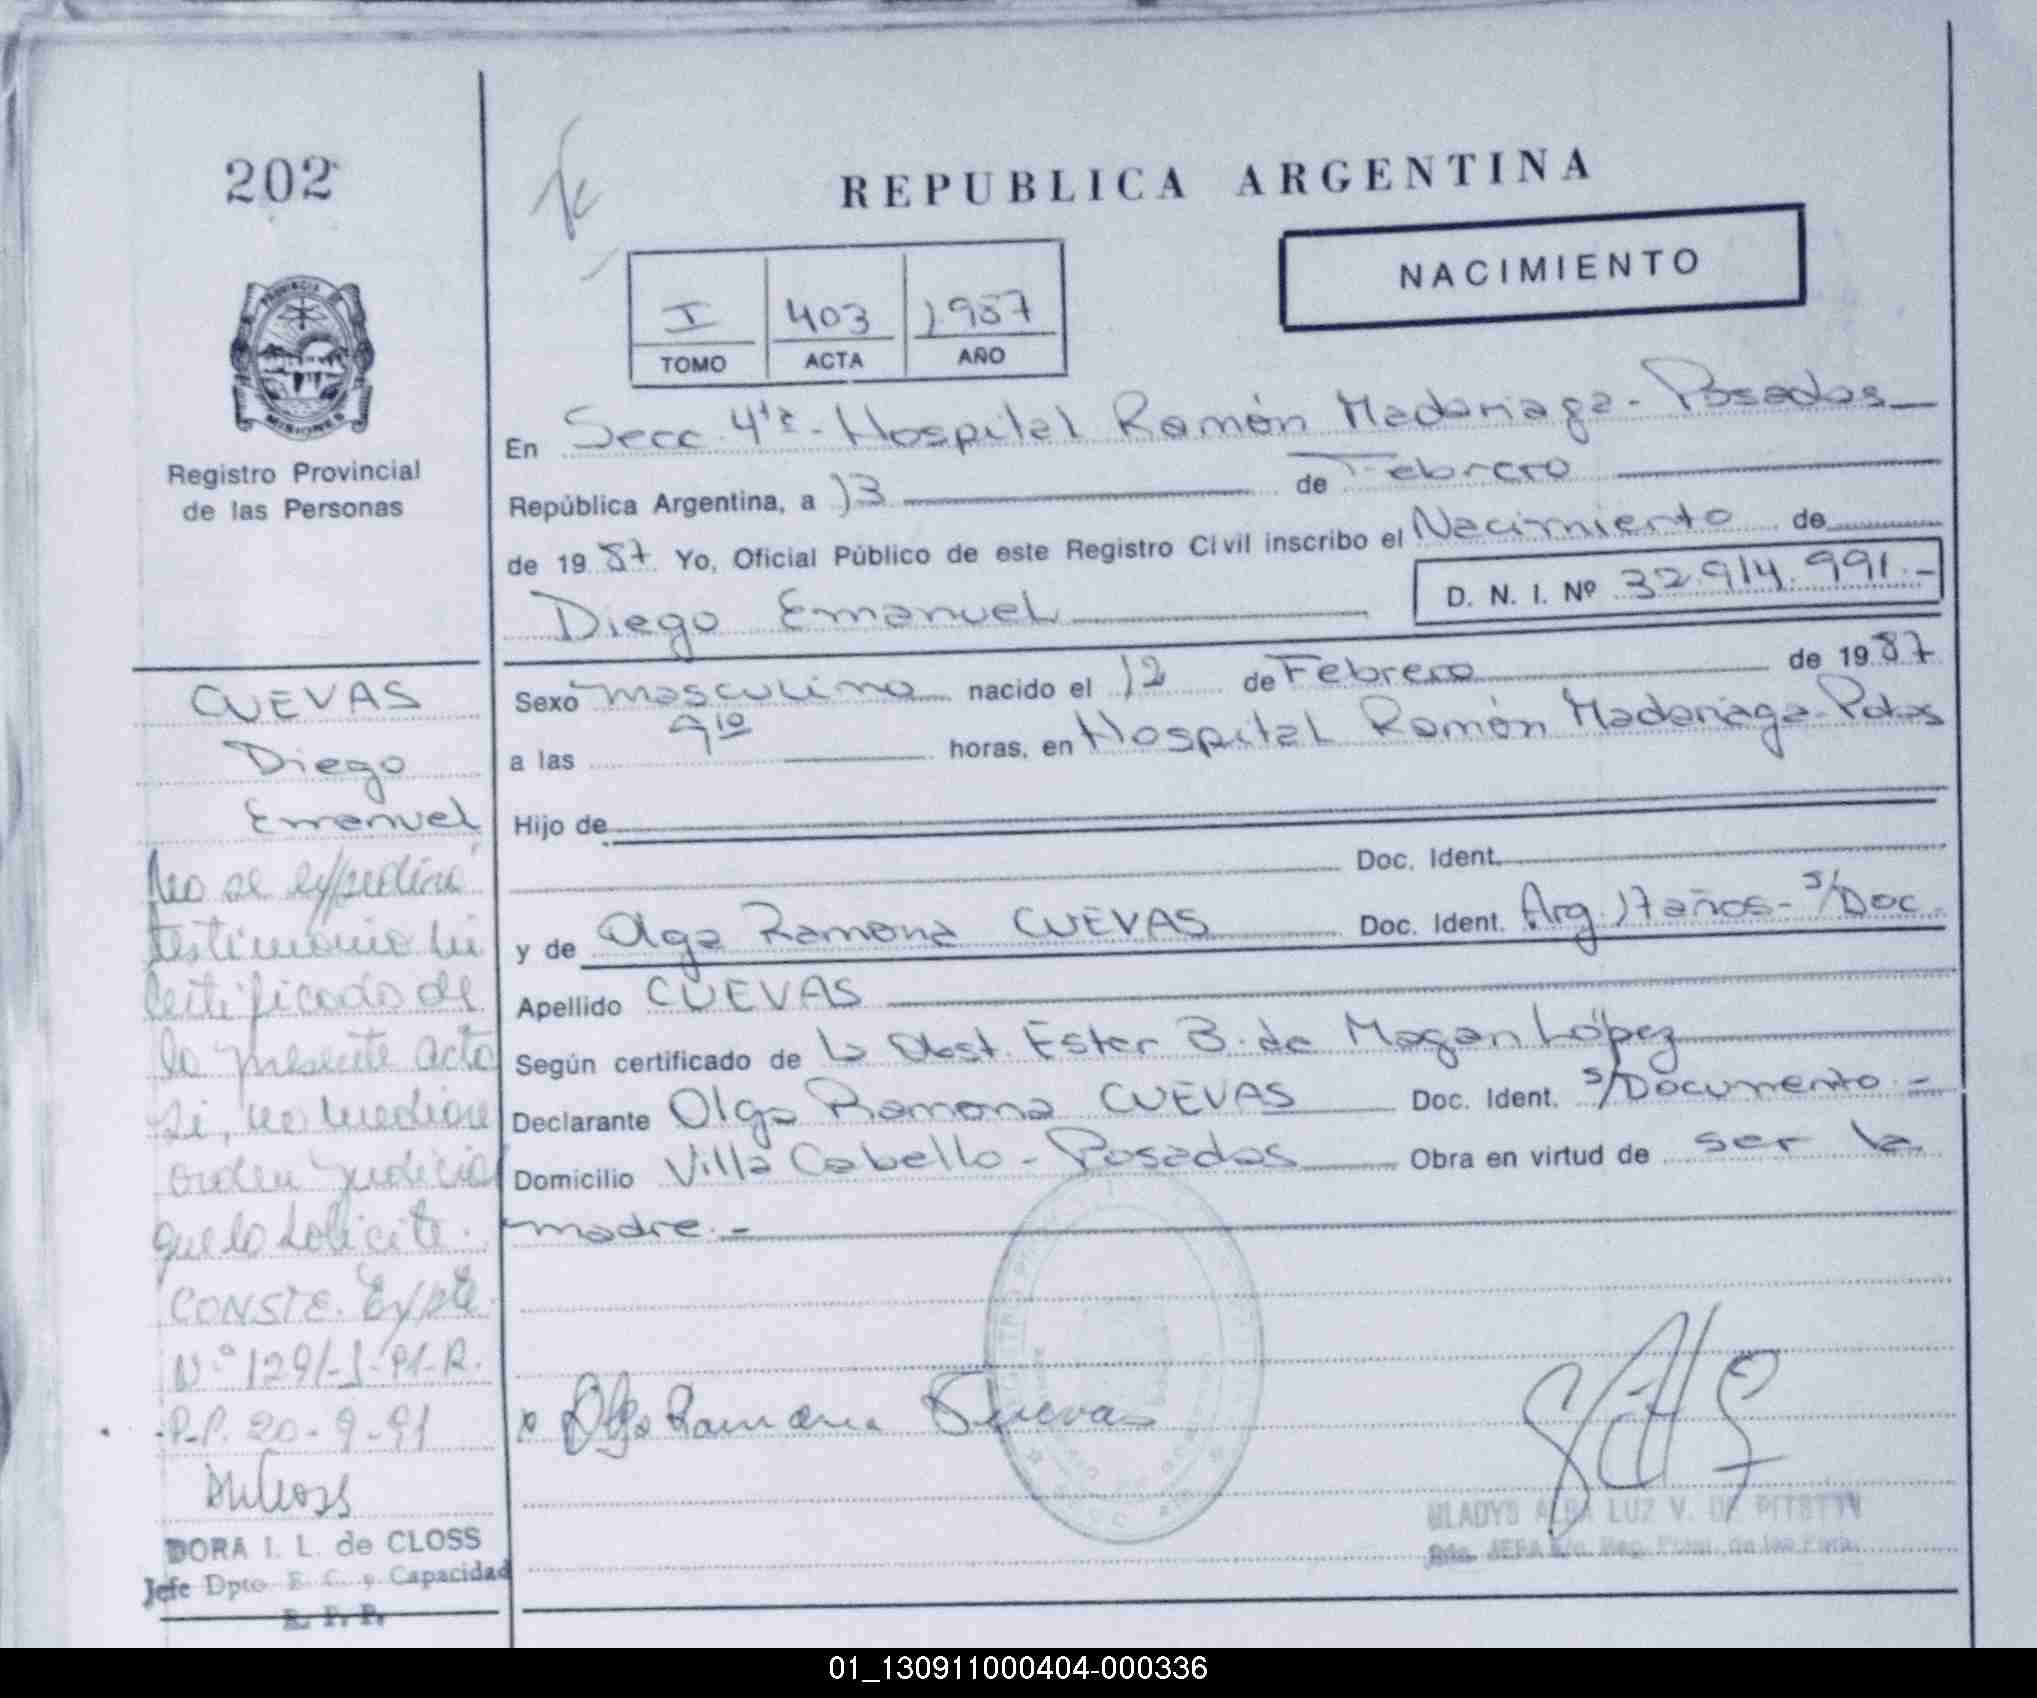 202
REPUBLICA ARGENTINA
NACIMIENTO
I 403 1987
TOMO ACTA AÑO
PROVINCIA DE
MISIONES
Registro Provincial
de las Personas
En Secc. 4ta - Hospital Ramón Madariaga - Posadas
República Argentina, a 13 de Febrero
de 1987 Yo, Oficial Público de este Registro Civil inscribo el Nacimiento de
Diego Emanuel D. N. I. Nº 32.914.991.-
Sexo masculino nacido el 12 de Febrero de 1987
a las 9 10 horas, en Hospital Ramón Madariaga - Pdas
Hijo de
Doc. Ident.
y de Olga Ramona CUEVAS Doc. Ident. Arg. 17 años - s/Doc.
Apellido CUEVAS
Según certificado de la Obst. Ester B. de Magan López
Declarante Olga Ramona CUEVAS Doc. Ident. s/Documento.-
Domicilio Villa Cabello - Posadas Obra en virtud de ser la
madre.-
Olga Ramona Cuevas
GLADYS ALBA LUZ V. DE
CUEVAS
Diego
Emanuel
No se expedirá
testimonio ni
certificado de
la presente acta
si, no mediare
orden judicial
que lo solicite.
CONSTE. Expte.
N.º 1291-J-91-R.
R.P.P. 20-9-91
DORA I. L. de CLOSS
Jefe Dpto E. C. y Capacidad
R. P. P.
01_130911000404-000336